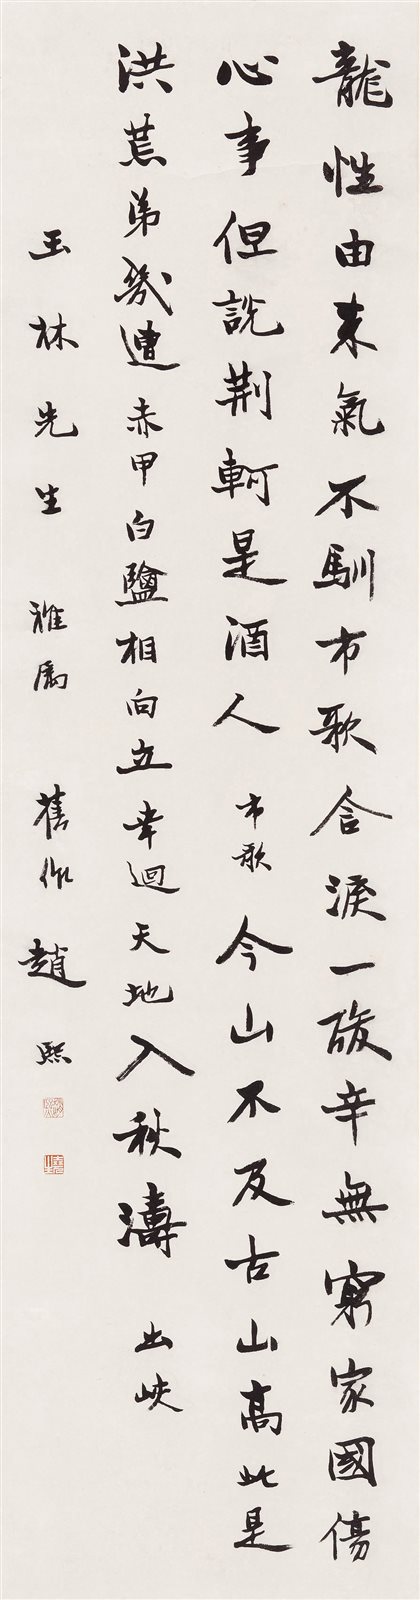 龍性由来氣不馴市歌含淚一酸辛無窮家國傷
心事但説荆軻是酒人 市歌 今山不及古山高此是
洪荒第幾遭赤甲白鹽相向立幸迴天地入秋濤 出峽
玉林先生 雅屬 舊作 趙熙